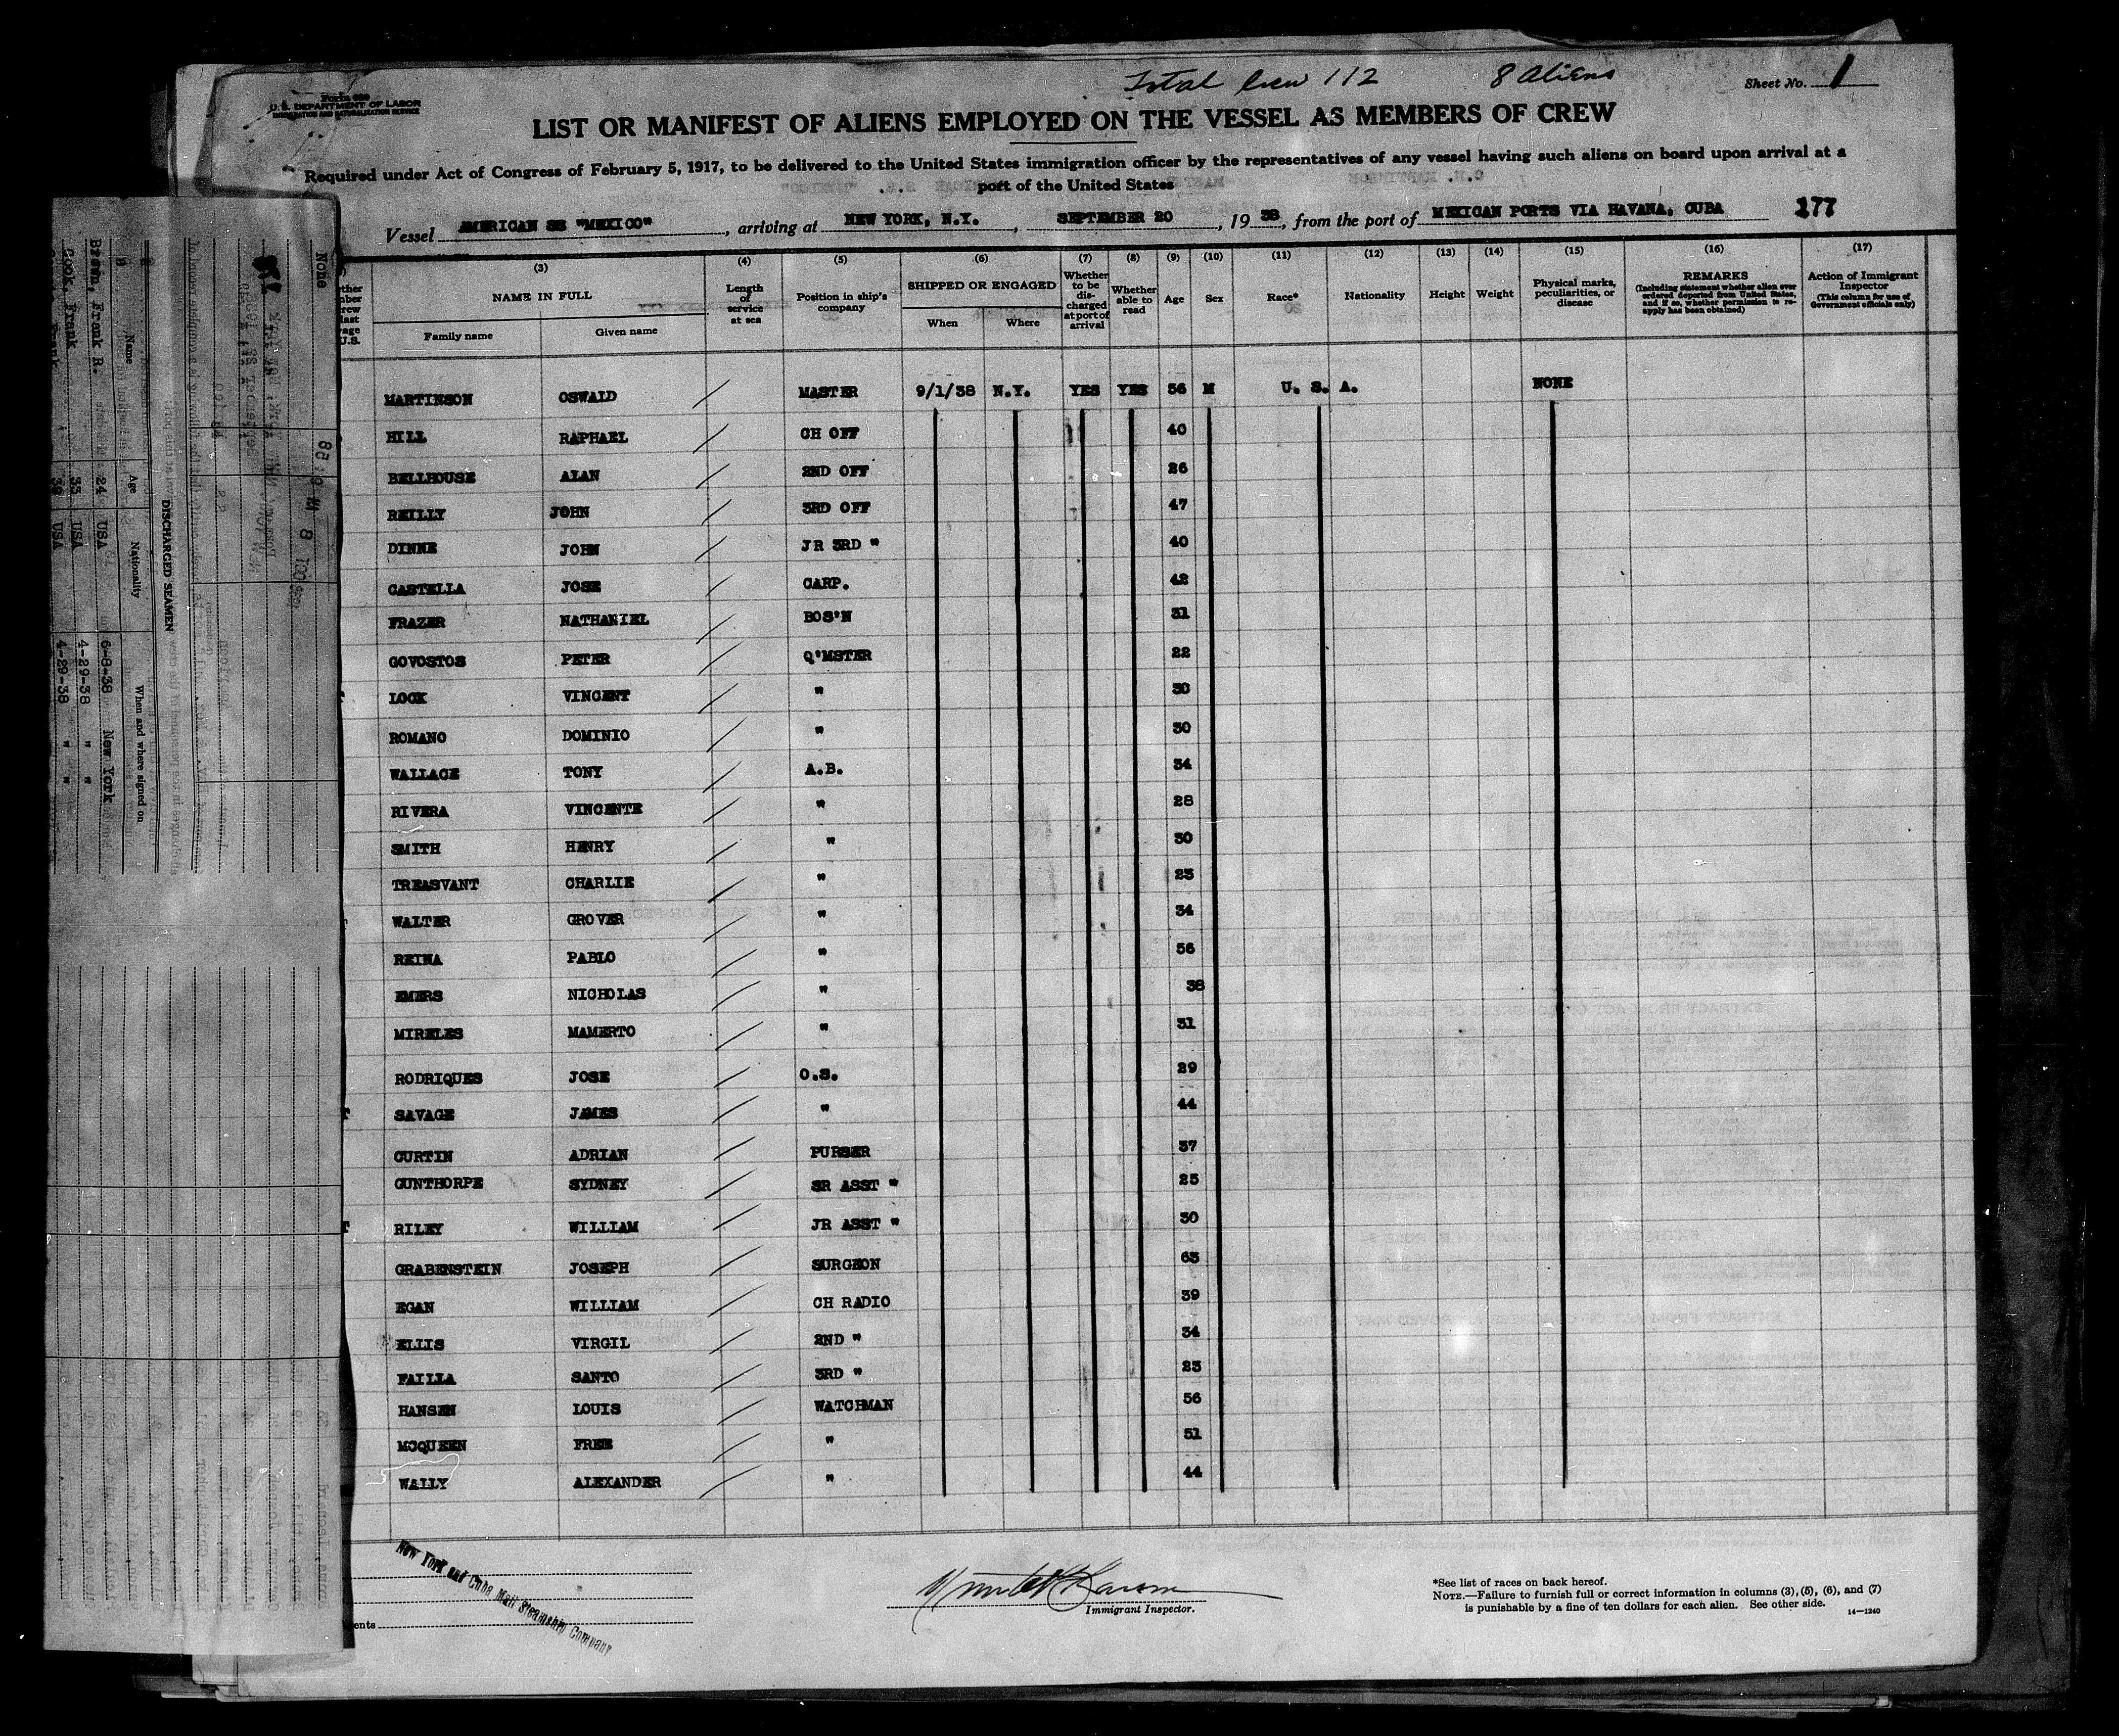 Total Crew 112 8 Aliens Sheet No. 1
Form 689
U. S. DEPARTMENT OF LABOR
IMMIGRATION AND NATURALIZATION SERVICE
LIST OR MANIFEST OF ALIENS EMPLOYED ON THE VESSEL AS MEMBERS OF CREW
Required under Act of Congress of February 5, 1917, to be delivered to the United States immigration officer by the representatives of any vessel having such aliens on board upon arrival at a
port of the United States
Vessel AMERICAN SS "MEXICO", arriving at NEW YORK, N.Y., SEPTEMBER 20, 1938, from the port of MEXICAN PORTS VIA HAVANA, CUBA 177
(3) (4) (5) (6) (7) (8) (9) (10) (11) (12) (13) (14) (15) (16) (17)
NAME IN FULL Length of service at sea Position in ship's company SHIPPED OR ENGAGED Whether to be discharged at port of arrival Whether able to read Age Sex Race* Nationality Height Weight Physical marks, peculiarities, or disease REMARKS (Including statement whether alien ever ordered deported from United States, and if so, whether permission to reapply has been obtained) Action of Immigrant Inspector (This column for use of Government officials only)
Family name Given name When Where
MARTINSON OSWALD MASTER 9/1/38 N.Y. YES YES 56 M U. S. A. NONE
HILL RAPHAEL CH OFF 40
BELLHOUSE ALAN 2ND OFF 26
REILLY JOHN 3RD OFF 47
DINNE JOHN JR 3RD " 40
CASTELLA JOSE CARP. 42
FRAZER NATHANIEL BOS'N 31
GOVOSTOS PETER Q'MSTER 22
LOCK VINCENT " 30
ROMANO DOMINIO " 30
WALLACE TONY A.B. 34
RIVERA VINCENTE " 28
SMITH HENRY " 30
TREASVANT CHARLIE " 23
WALTER GROVER " 34
REINA PABLO " 56
EMERS NICHOLAS " 38
MIRELES MAMERTO " 31
RODRIQUES JOSE O.S. 29
SAVAGE JAMES " 44
CURTIN ADRIAN PURSER 37
GUNTHORPE SYDNEY SR ASST " 25
RILEY WILLIAM JR ASST " 30
GRABENSTEIN JOSEPH SURGEON 63
EGAN WILLIAM CH RADIO 39
ELLIS VIRGIL 2ND " 34
FAILLA SANTO 3RD " 23
HANSEN LOUIS WATCHMAN 56
MCQUEEN FREE " 51
WALLY ALEXANDER " 44
New York and Cuba Mail Steamship Company
Immigrant Inspector.
*See list of races on back hereof.
NOTE.—Failure to furnish full or correct information in columns (3), (5), (6), and (7)
is punishable by a fine of ten dollars for each alien. See other side.
14—1240
None
1938 OCT 8
DISCHARGED SEAMEN
Name Age Nationality When and where signed on
Brown, Frank R. 24 USA 6-8-38 New York
Cook, Frank 33 USA 4-29-38 "
USA 4-29-38 "